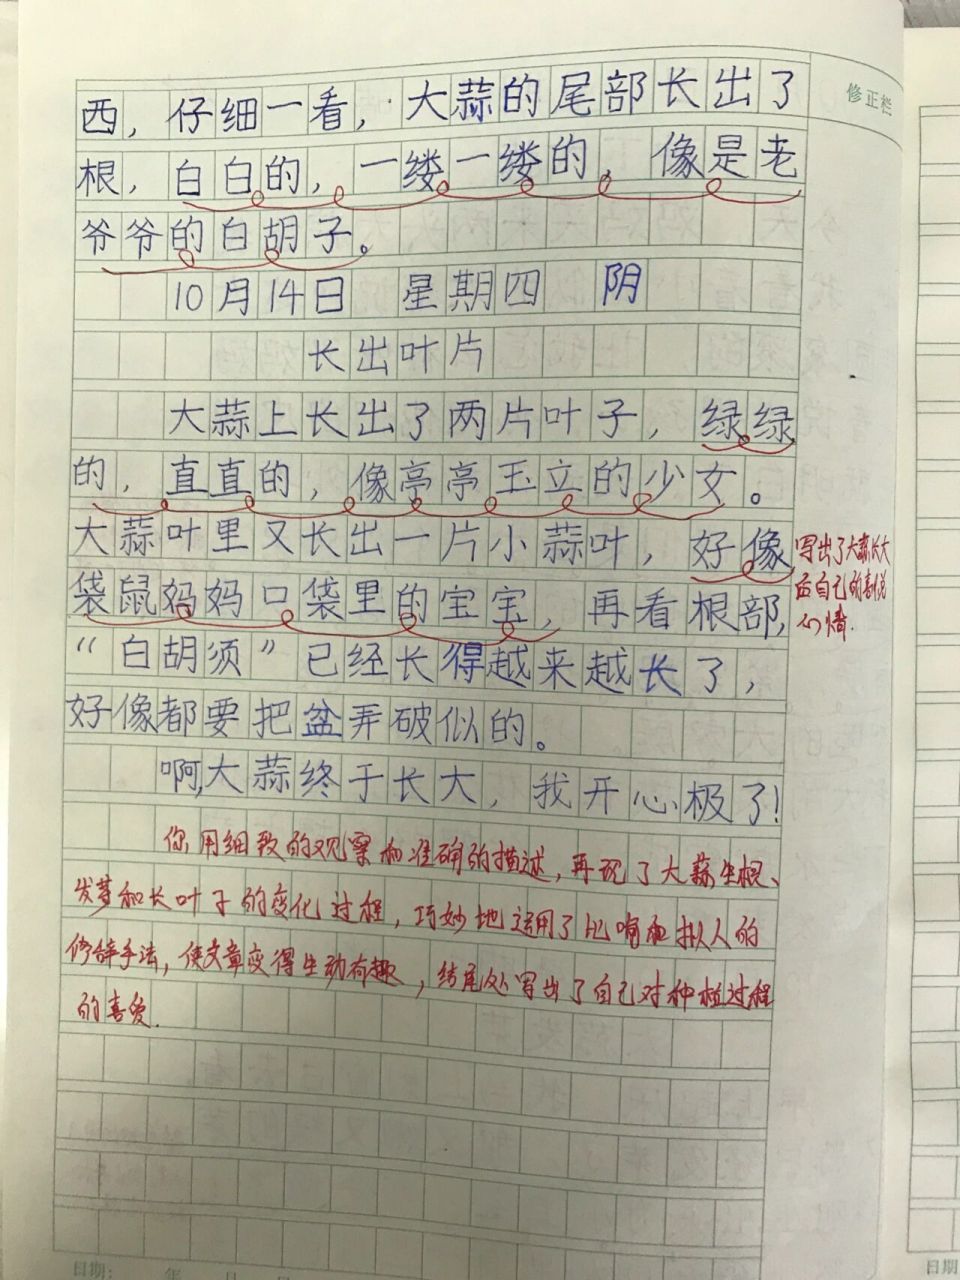 修正栏
西，仔细一看，大蒜的尾部长出了
根，白白的，一缕一缕的，像是老
爷爷的白胡子。
10月14日 星期四 阴
长出叶片
大蒜上长出了两片叶子，绿绿
的，直直的，像亭亭玉立的少女。
大蒜叶里又长出一片小蒜叶，好像
袋鼠妈妈口袋里的宝宝，再看根部，
“白胡须”已经长得越来越长了，
好像都要把盆弄破似的。
啊，大蒜终于长大，我开心极了！
写出了大蒜长大
后自己的喜悦
心情.
你用细致的观察和准确的描述，再现了大蒜生根、
发芽和长叶子的变化过程，巧妙地运用了比喻和拟人的
修辞手法，使文章变得生动有趣，结尾处写出了自己对种植过程
的喜爱.
日期： 年 月 日
日期